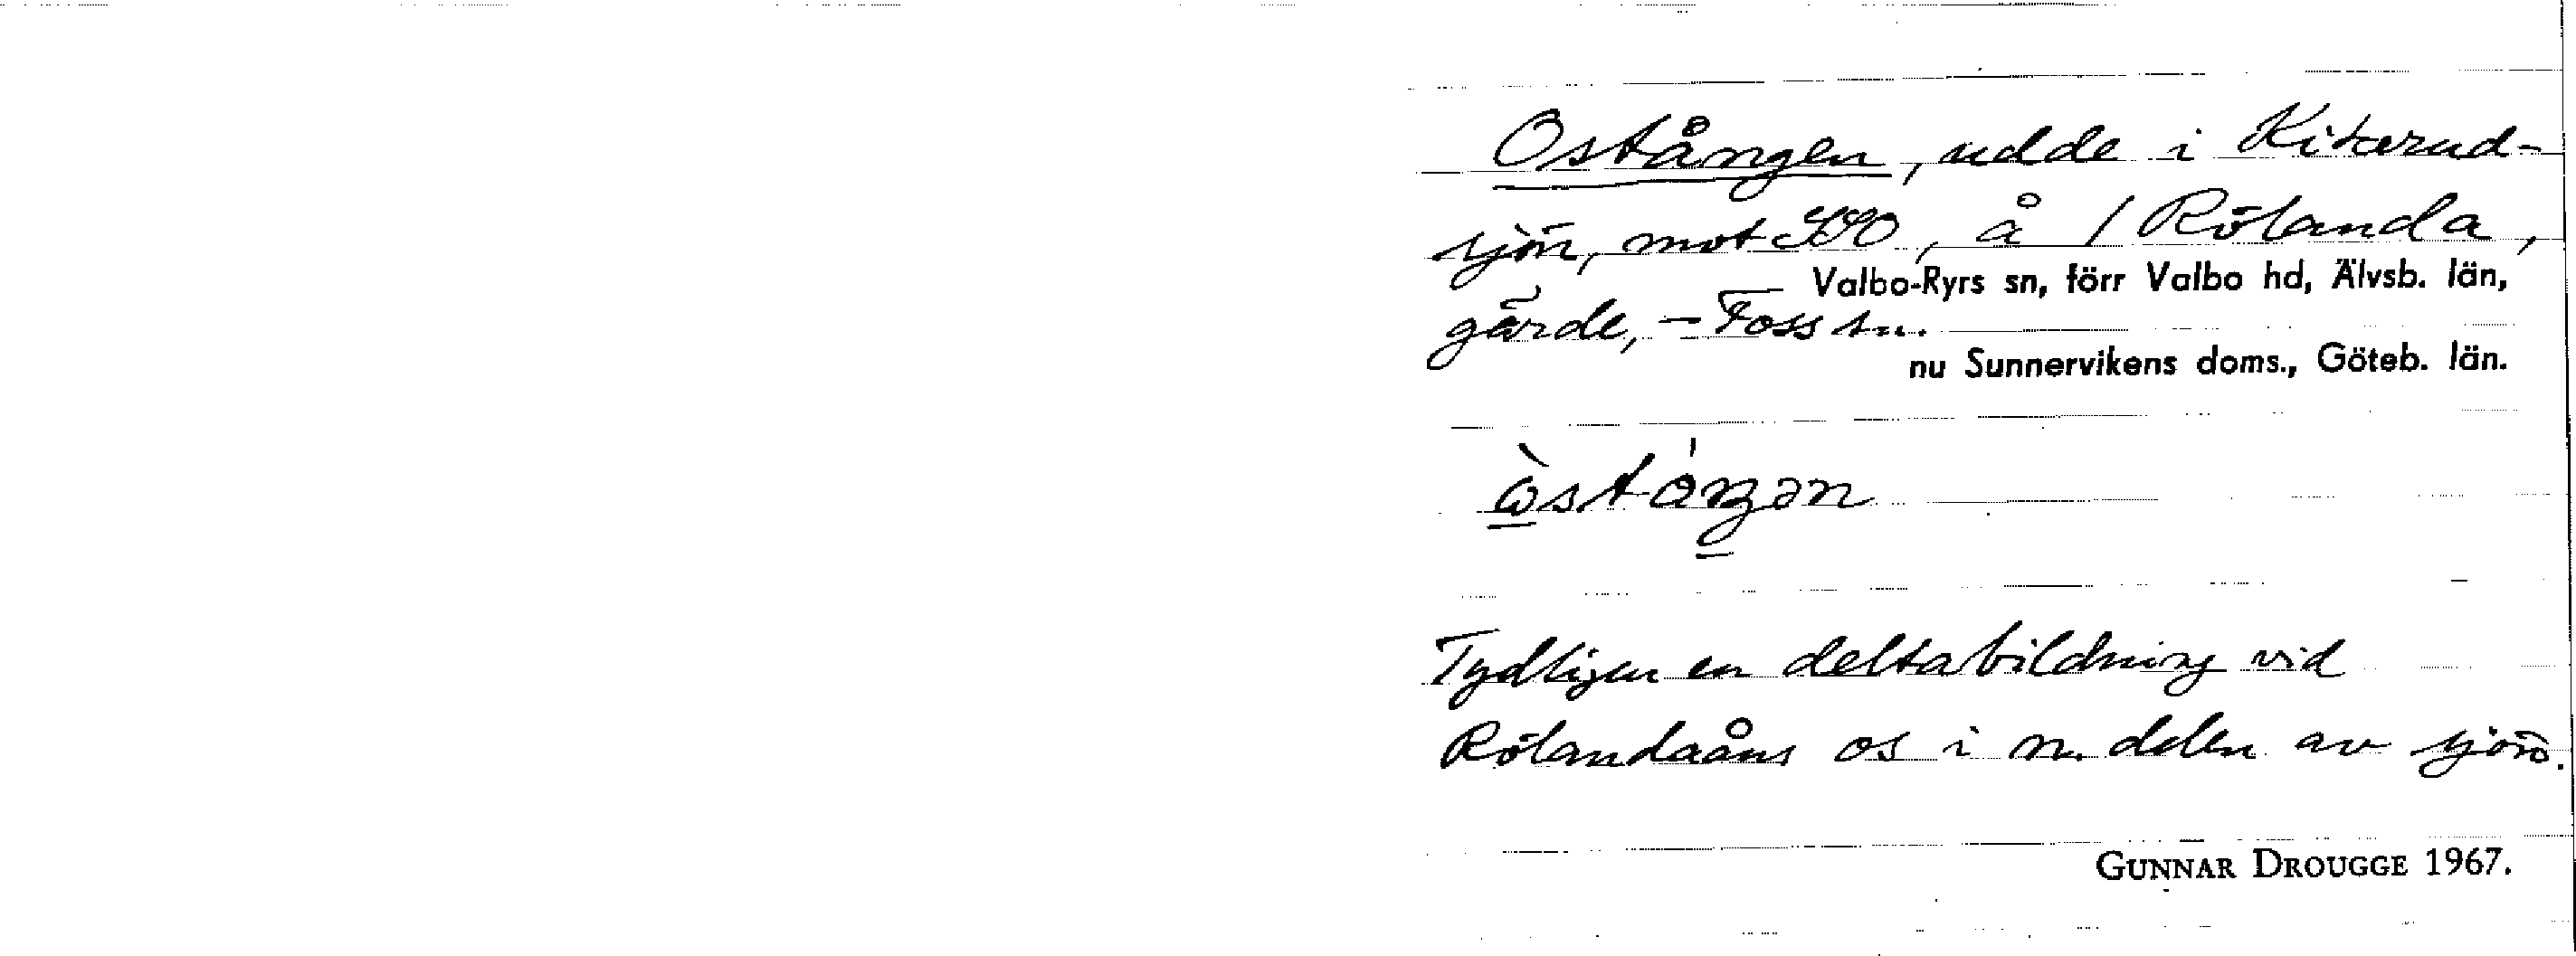 Ostången, udde i Kikerud-
sjön, mot SSO, å 1 Rölanda,
Valbo-Ryrs sn, förr Valbo hd, Älvsb. län,
gärde, - Foss sn.
nu Sunnervikens doms., Göteb. län.
Tydligen en deltabildning vid
Rölandaåns os i n. delen av sjön.
GUNNAR DROUGGE 1967.